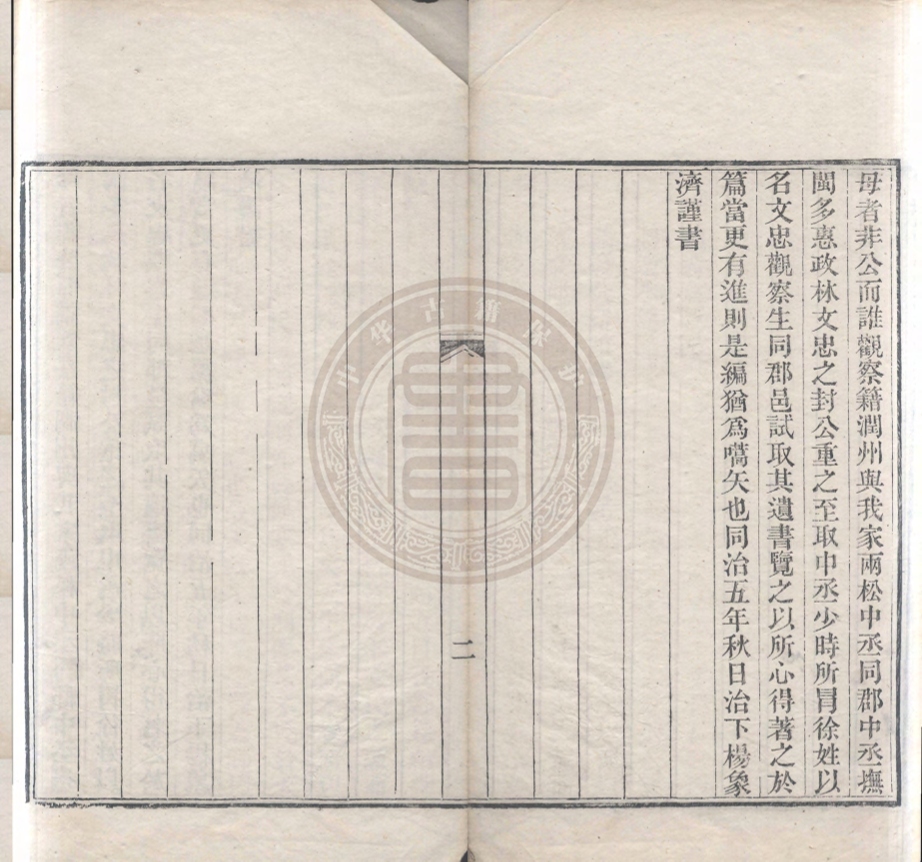 母者非公而誰觀察籍潤州與我家兩松中丞同郡中丞撫
閩多惠政林文忠之封公重之至取中丞少時所冒徐姓以
名文忠觀察生同郡邑試取其遺書覽之以所心得著之於
篇當更有進則是編猶爲嚆矢也同治五年秋日治下楊象
濟謹書
二
中华古籍保护